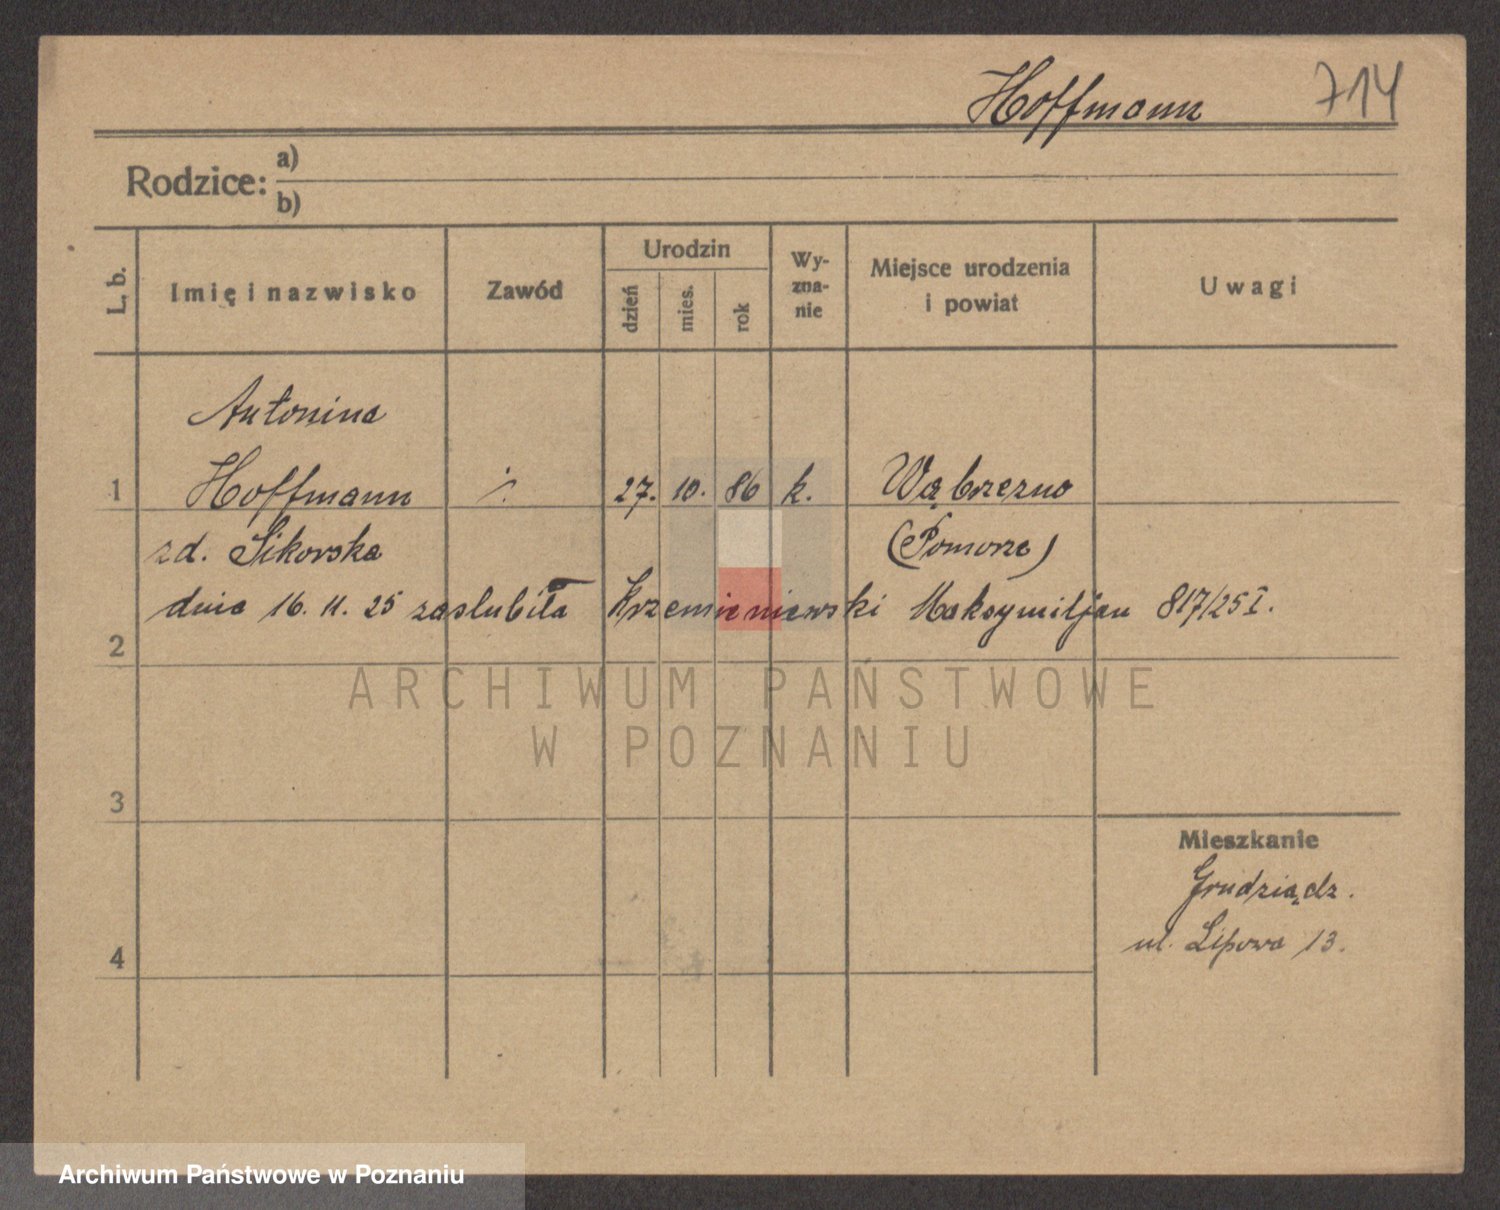 Hoffmann 714
Rodzice: a)
b)
L. b.
Imię i nazwisko
Zawód
Urodzin
dzień
mies.
rok
Wy-
zna-
nie
Miejsce urodzenia
i powiat
Uwagi
Antonina
1 Hoffmann ·/. 27. 10. 86 k. Wąbrzezno
zd. Sikorska (Pomorze)
dnia 16. 11. 25 zaslubiła Krzemieniewski Maksymiljan 817/25 I.
2
ARCHIWUM PAŃSTWOWE
W POZNANIU
3
Mieszkanie
Grudziądz.
ul. Lipowa 13.
4
Archiwum Państwowe w Poznaniu